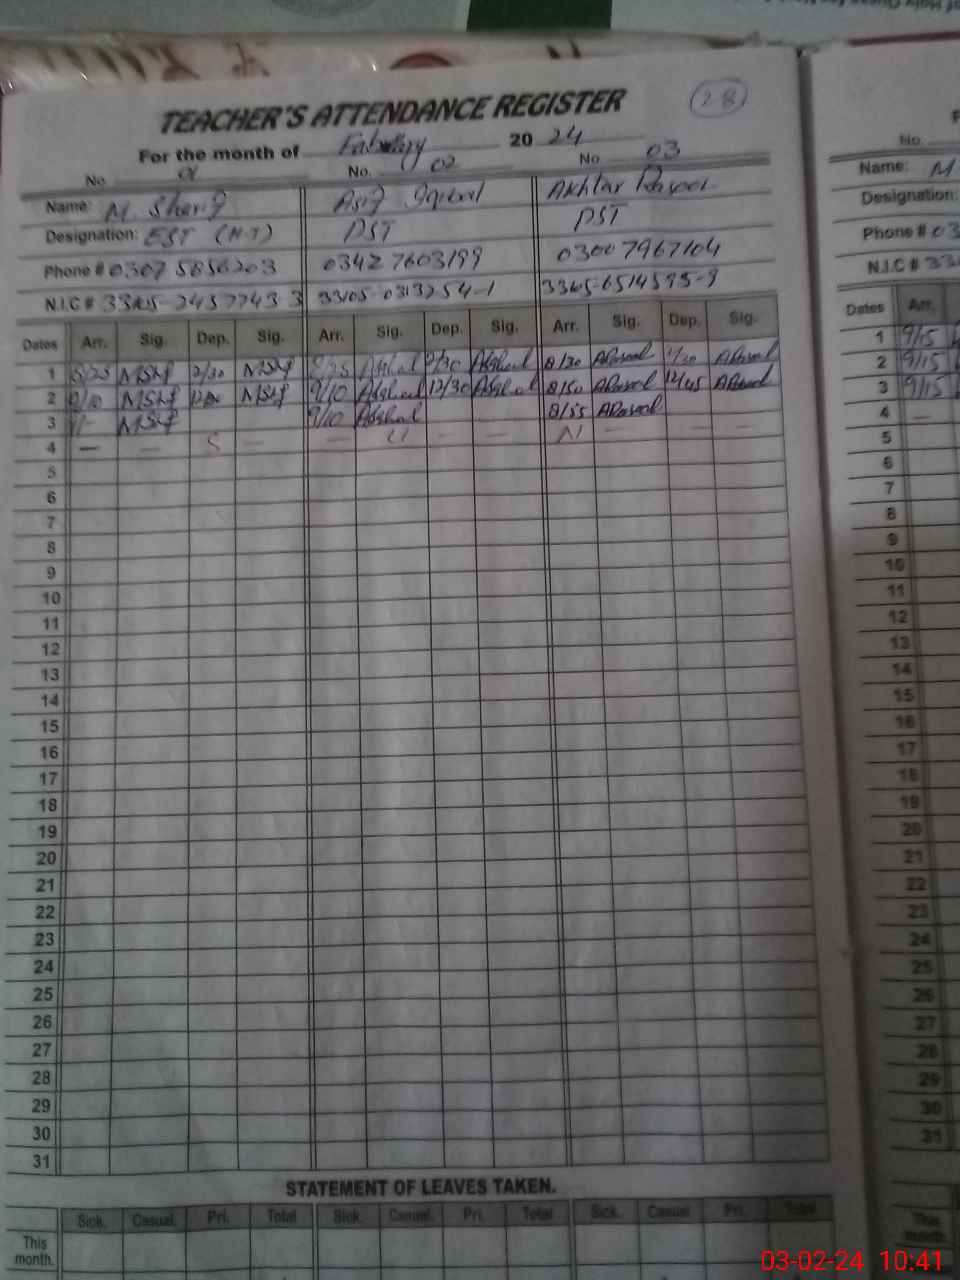 TEACHER'S ATTENDANCE REGISTER
28
For the month of Fabuary 2024
No 01 No. 02 No 03
Name: M. Sharif Asif Iqbal Akhtar Rasool
Designation: EST (H-T) PST PST
Phone # 0307 5856203 0342 7603199 0300 7967104
N.I.C #
Dates Arr. Sig. Dep. Sig. Arr. Sig. Dep. Sig. Arr. Sig. Dep. Sig.
1 8/25 MShf 2/30 MShf 8/25 2/30 8/30 ARasool ARasool
2 9/10 MShf MShf 9/10 12/30 8/50 ARasool 12/45 ARasool
3 MShf 9/10 8/55 ARasool
4 — S — — U — — N — — —
5
6
7
8
9
10
11
12
13
14
15
16
17
18
19
20
21
22
23
24
25
26
27
28
29
30
31
STATEMENT OF LEAVES TAKEN.
Sick. Casual. Pri. Total Sick. Casual. Pri. Total Sick. Casual Pri. Total
This
month.
No.
Name: M
Designation:
Phone # 03
N.I.C # 33
Dates Arr.
1 9/15
2 9/15
3 9/15
4 —
5
6
7
8
9
10
11
12
13
14
15
16
17
18
19
20
21
22
23
24
25
26
27
28
29
30
31
This
month.
03-02-24 10:41